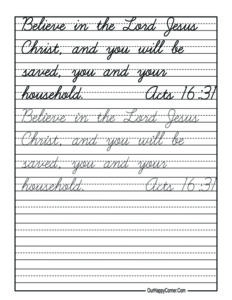 Believe in the Lord Jesus
Christ, and you will be
saved, you and your
household. Acts 16:31
Believe in the Lord Jesus
Christ, and you will be
saved, you and your
household. Acts 16:31
OurHappyCorner.Com